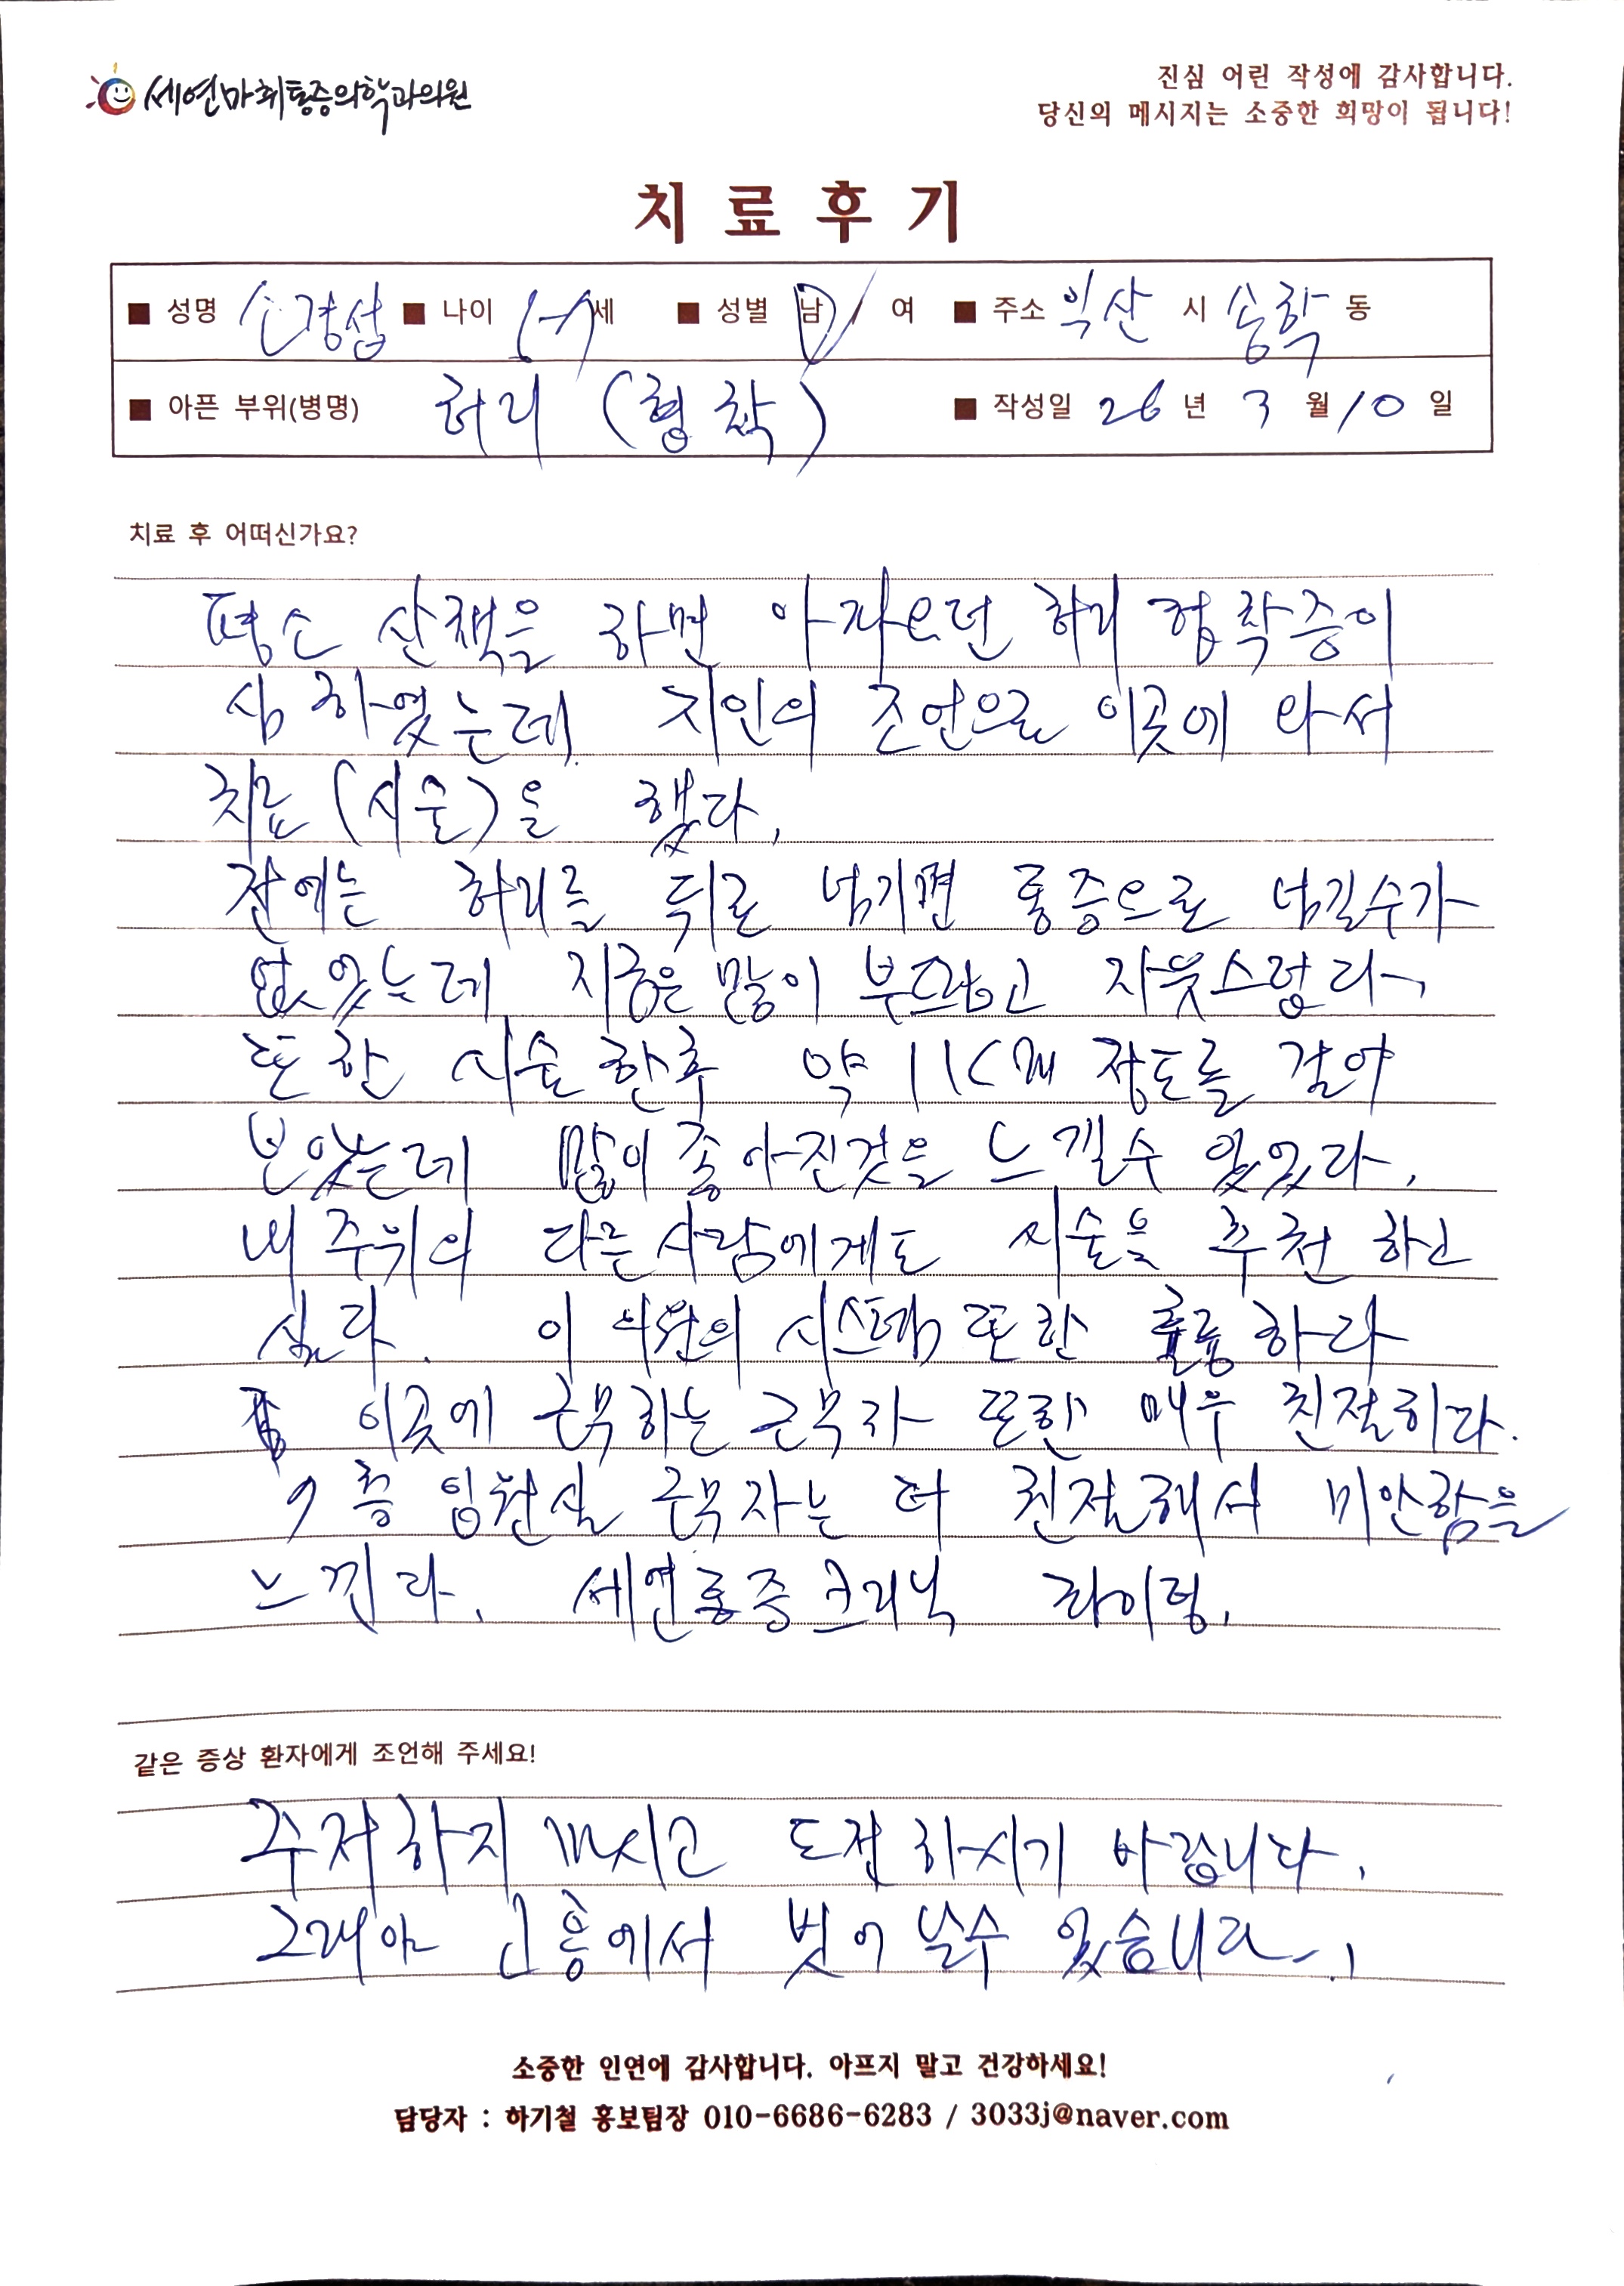 세연마취통증의학과의원
진심 어린 작성에 감사합니다.
당신의 메시지는 소중한 희망이 됩니다!
치료후기
■ 성명 신경섭 ■ 나이 세 ■ 성별 남 / 여 ■ 주소 익산 시 송학 동
■ 아픈 부위(병명) 허리 (협착) ■ 작성일 26 년 3 월 10 일
치료 후 어떠신가요?
평소 산책을 하면 허리 협착증이
심하였는데 지인의 조언으로 이곳에 와서
치료(시술)을 했다.
전에는 허리를 뒤로 넘기면 통증으로 넘길수가
없었는데 지금은 많이 부드럽고 자유스럽다.
또한 시술한후 약 11Km 정도를 걸어
보았는데 많이 좋아진것을 느낄수 있었다.
내 주위의 다른사람에게도 시술을 추천 하고
싶다. 이 의원의 시스템 또한 훌륭하다
이곳에 근무하는 근무자 또한 매우 친절하다.
7층 입원실 근무자는 더 친절해서 미안함을
느낀다. 세연통증크리닉 화이팅.
같은 증상 환자에게 조언해 주세요!
주저하지 마시고 도전하시기 바랍니다.
그래야 고통에서 벗어 날수 있습니다.
소중한 인연에 감사합니다. 아프지 말고 건강하세요!
담당자 : 하기철 홍보팀장 010-6686-6283 / 3033j@naver.com